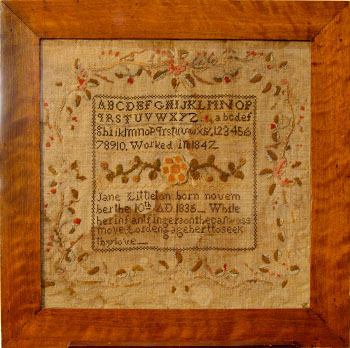 ABCDEFGHIJKLMNOP
QRSTUVWXYZ abcdef
ghiklmnopqrstuvwxyz, 123456
78910, Worked in 1842
Jane Littleton born novem
ber the 10th AD 1836 While
her infant fingers on the canvass
move Lord engage her to seek
thy love